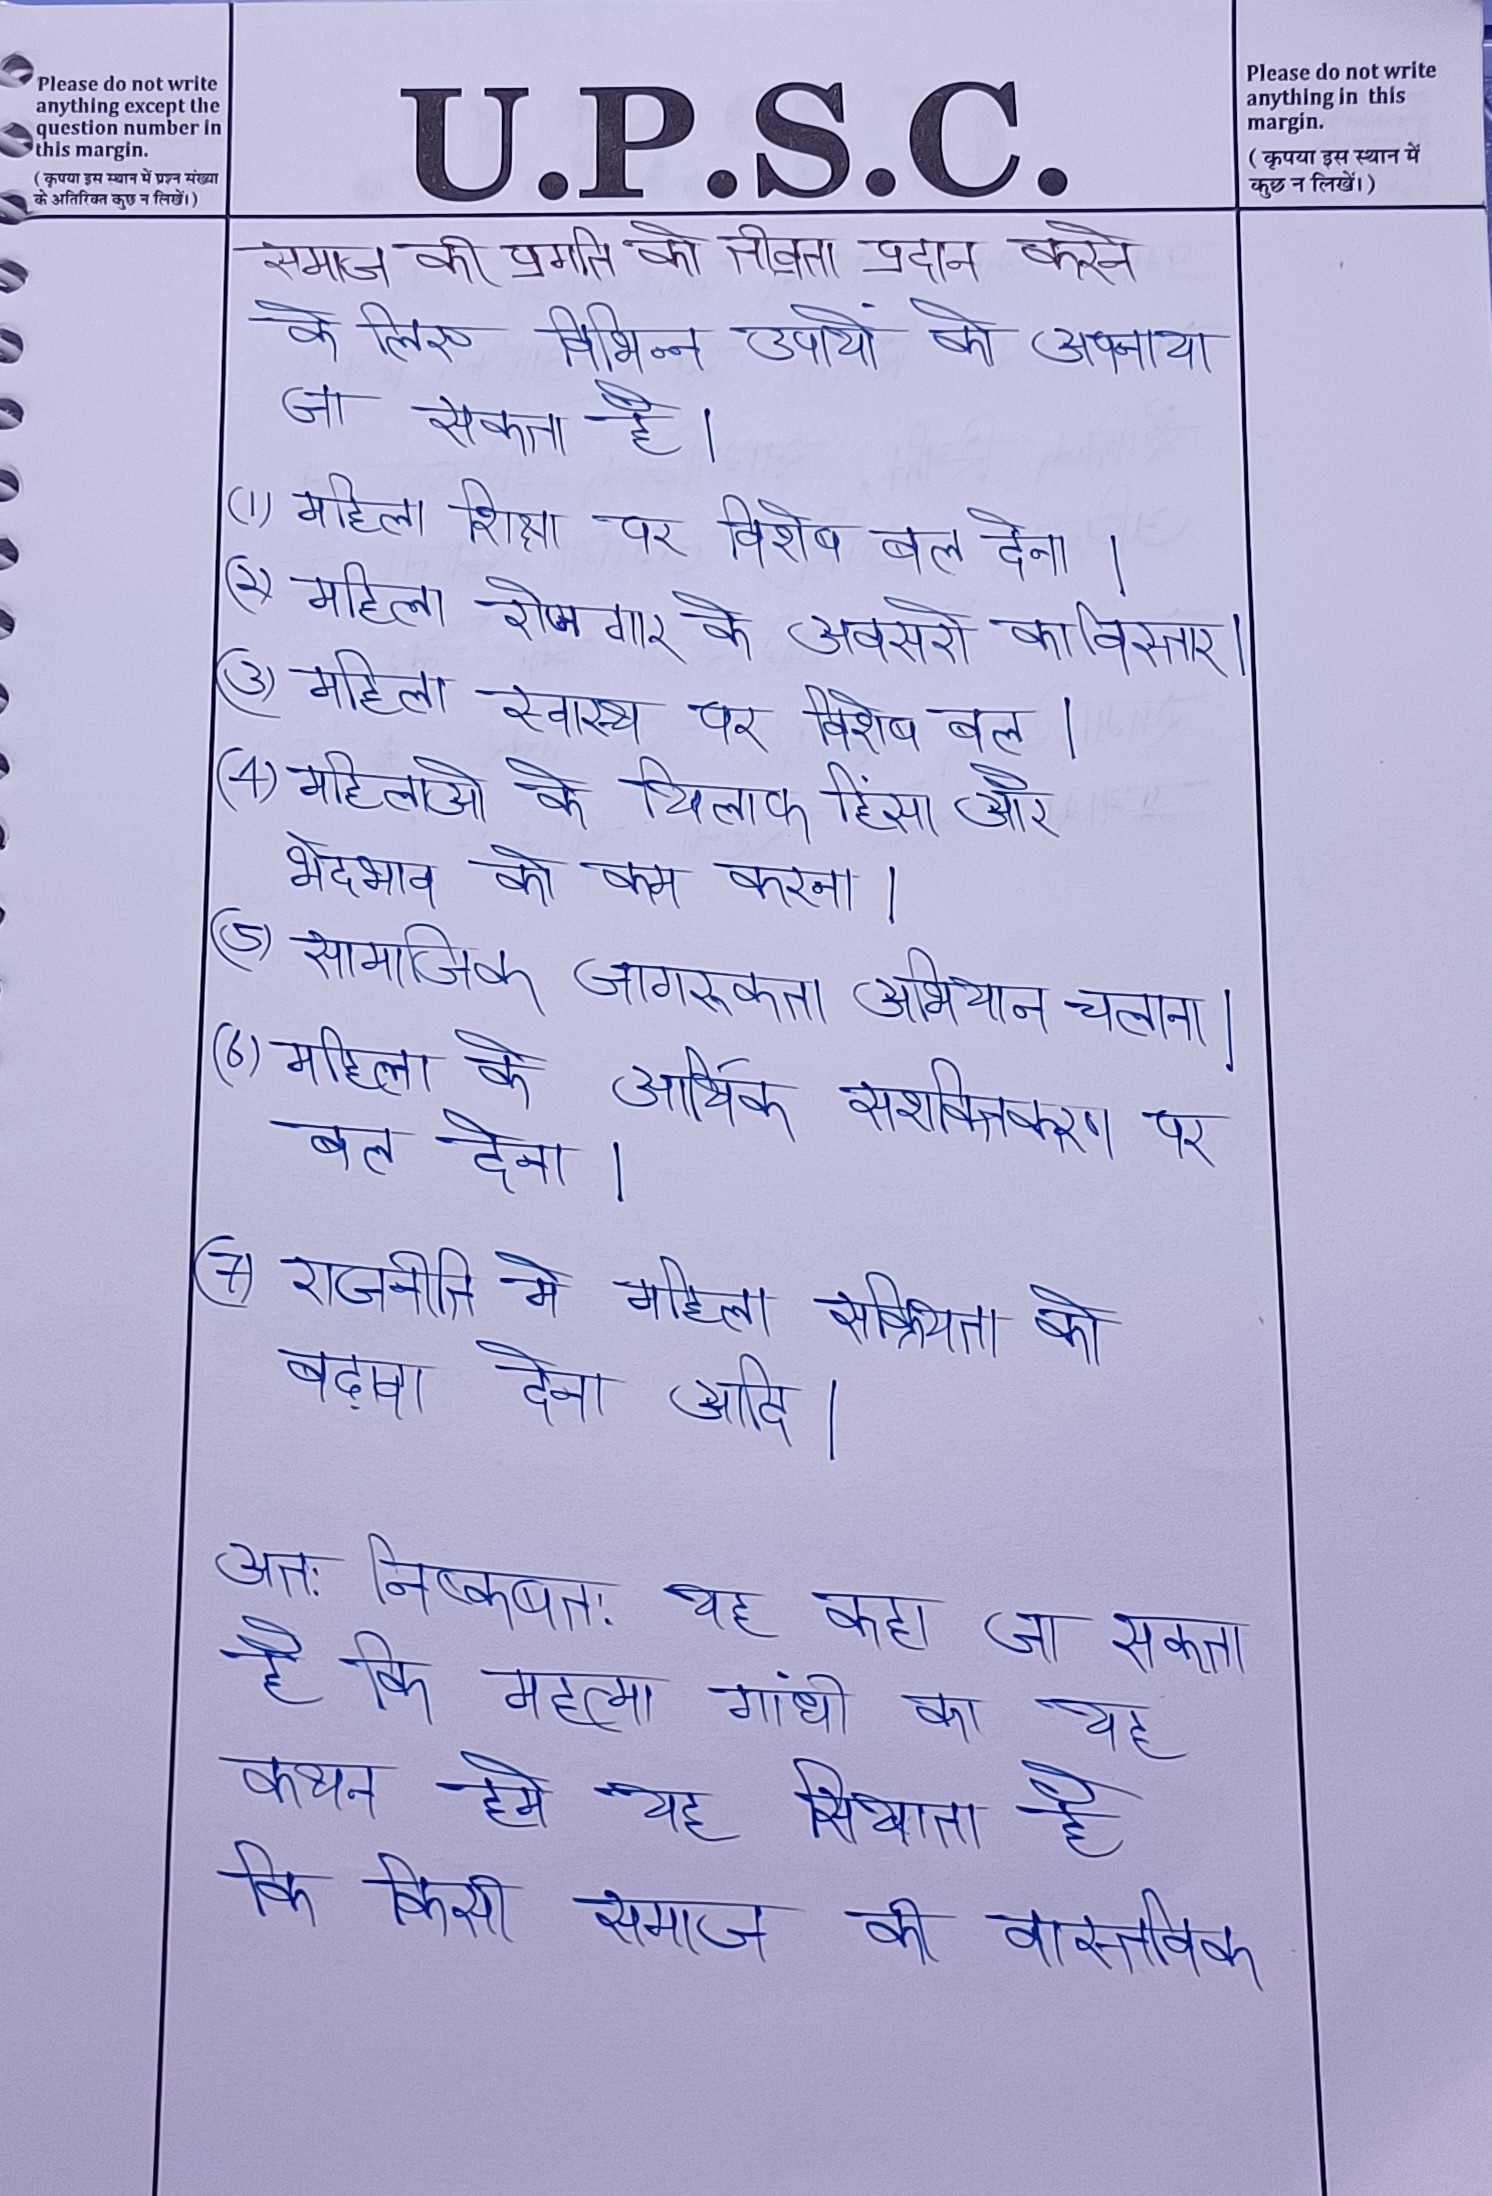 Please do not write
anything except the
question number in
this margin.
(कृपया इस स्थान में प्रश्न संख्या
के अतिरिक्त कुछ न लिखें।)
U.P.S.C.
Please do not write
anything in this
margin.
(कृपया इस स्थान में
कुछ न लिखें।)
समाज की प्रगति को तीव्रता प्रदान करने
के लिए विभिन्न उपायों को अपनाया
जा सकता है।
(1) महिला शिक्षा पर विशेष बल देना।
(2) महिला रोजगार के अवसरो का विस्तार।
(3) महिला स्वास्थ्य पर विशेष बल।
(4) महिलाओ के खिलाफ हिंसा और
भेदभाव को कम करना।
(5) सामाजिक जागरूकता अभियान चलाना।
(6) महिला के आर्थिक सशक्तिकरण पर
बल देना।
(7) राजनीति मे महिला सक्रियता को
बढ़ावा देना आदि।
अतः निष्कषतः यह कहा जा सकता
है कि महत्मा गांधी का यह
कथन हमे यह सिखाता है
कि किसी समाज की वास्तविक